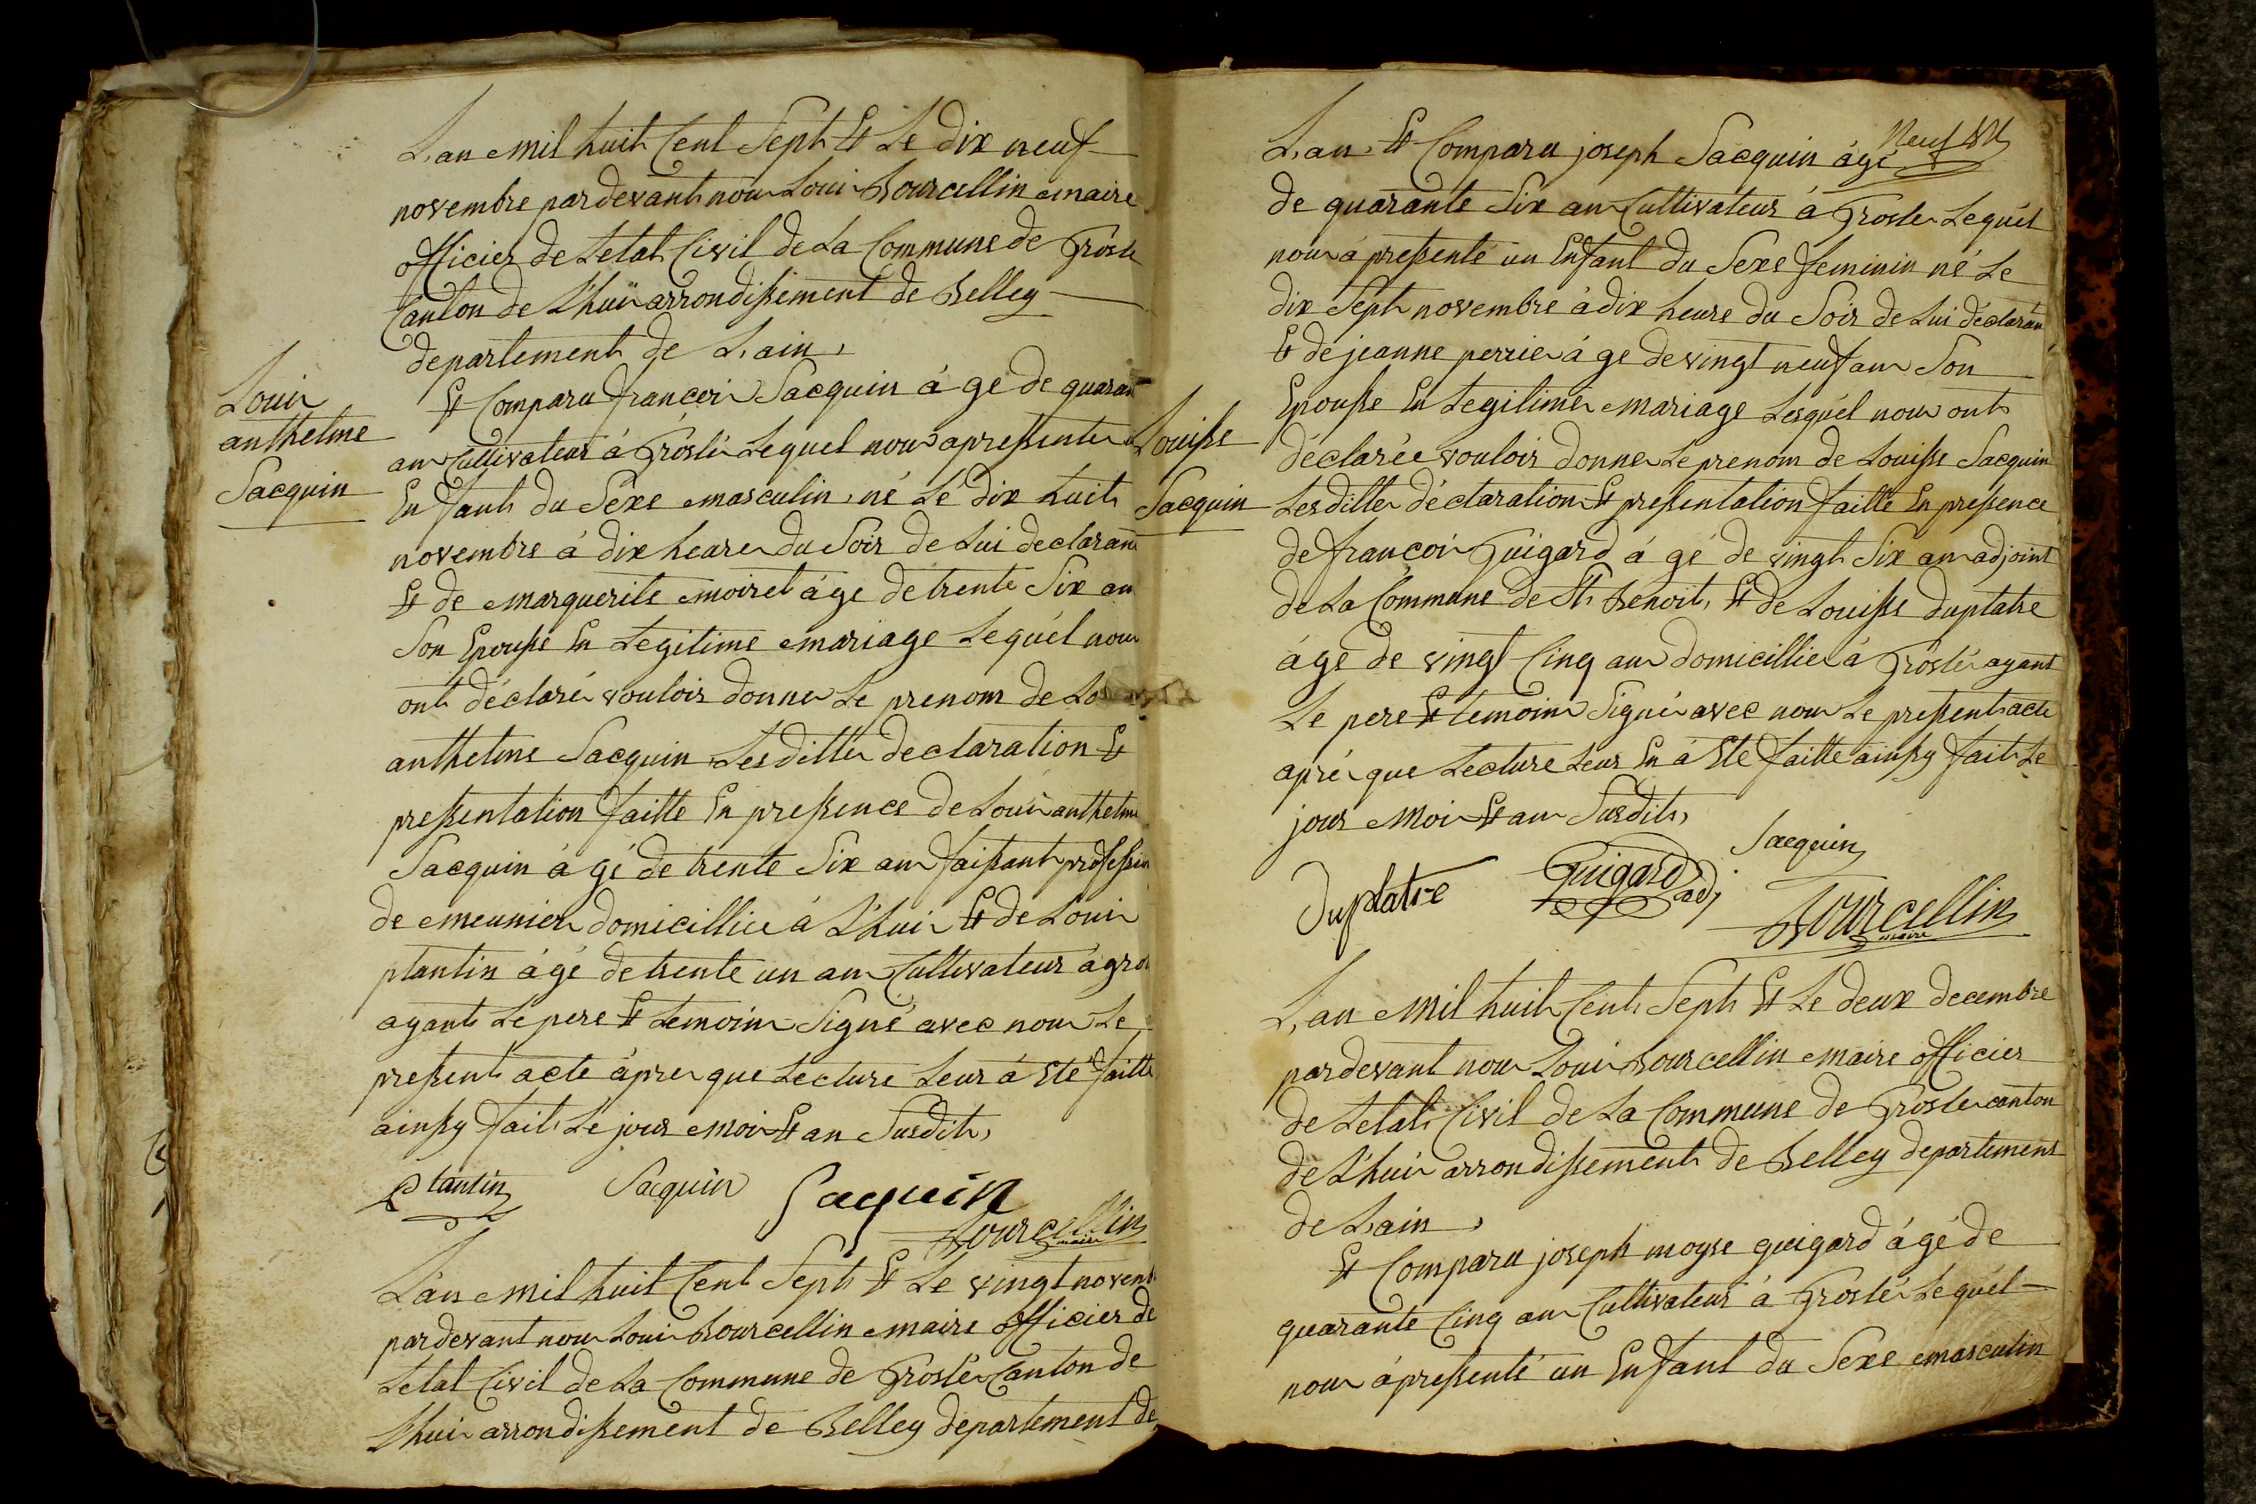 L'an mil huit Cent Sept Et Le dix neuf
novembre pardevant nous Louis Bourcellin maire
officier de Letat Civil de La Commune de Groslé
Canton de Lhuis arrondissement de Belley
departement de L'ain,
Et Comparu françois Sacquin ágé de quarante
ans Cultivateur á Groslé Lequel nous a pressenté un
Louis
anthelme
Sacquin
Enfant du Sexe masculin, né Le dix huit
novembre á dix heures du Soir de Lui declarant
Et de marguerite moiret ágé de trente Six ans
Son Epousse En Legitime mariage Lequél nous
ont déclaré vouloir donner Le prenom de
anthelme Sacquin Lesdittes declaration Et
pressentation faitte En pressence de Louis anthelme
Sacquin á gé de trente Six ans faissant profession
de meunier domicillié á Lhuis Et de Louis
plantin ágé de trente un ans Cultivateur á
ayant Le pere Et temoins Signé avec nous Le
pressent acte áprés que Lecture Leur á Eté faitte
ainssy fait Le jour mois Et an Susdit,
Plantin Sacquin Saquin
Bourcellin
maire
L'an mil huit Cent Sept Et Le vingt novembre
pardevant nous Louis Bourcellin maire officier de
Letat Civil de La Commune de Groslé Canton de
Lhuis arrondissement de Belley departement de
Neuf
L'an, Et Comparu joseph Sacquin ágé
de quarante Six ans Cultivateur á Groslé Lequél
nous á pressenté un Enfant du Sexe feminin né Le
dix Sept novembre á dix heure du Soir de Lui déclarant
Et de jeanne perrier á ge de vingt neuf ans Son
Epousse En Legitime mariage Lesquél nous ont
Louisse
Sacquin
déclarée vouloir donner Le prenom de Louisse Sacquin
Lesdittes déclaration Et pressentation faitte En pressence
de françois Guigard á gé de vingt Six ans adjoint
de La Commune de St, Benoit, Et de Louisse duplatre
ágé de vingt Cinq ans domicillié á Groslé ayant
Le pere Et temoins Signé avec nous Le pressent acte
aprés que Lecture Leur En á Eté faitte ainssy fait Le
jour mois Et an Susdit,
Sacquin
Duplatre Guigard adj
Bourcellin
maire
L'an mil huit Cent Sept Et Le deux decembre
pardevant nous Louis Bourcellin maire officier
de Letat Civil de La Commune de Groslé canton
de Lhuis arrondissement de Belley departement
de L'ain,
Et Comparu joseph moyse guigard ágé de
quarante Cinq ans Cultivateur á Groslé Lequél
nous á pressenté un Enfant du Sexe masculin